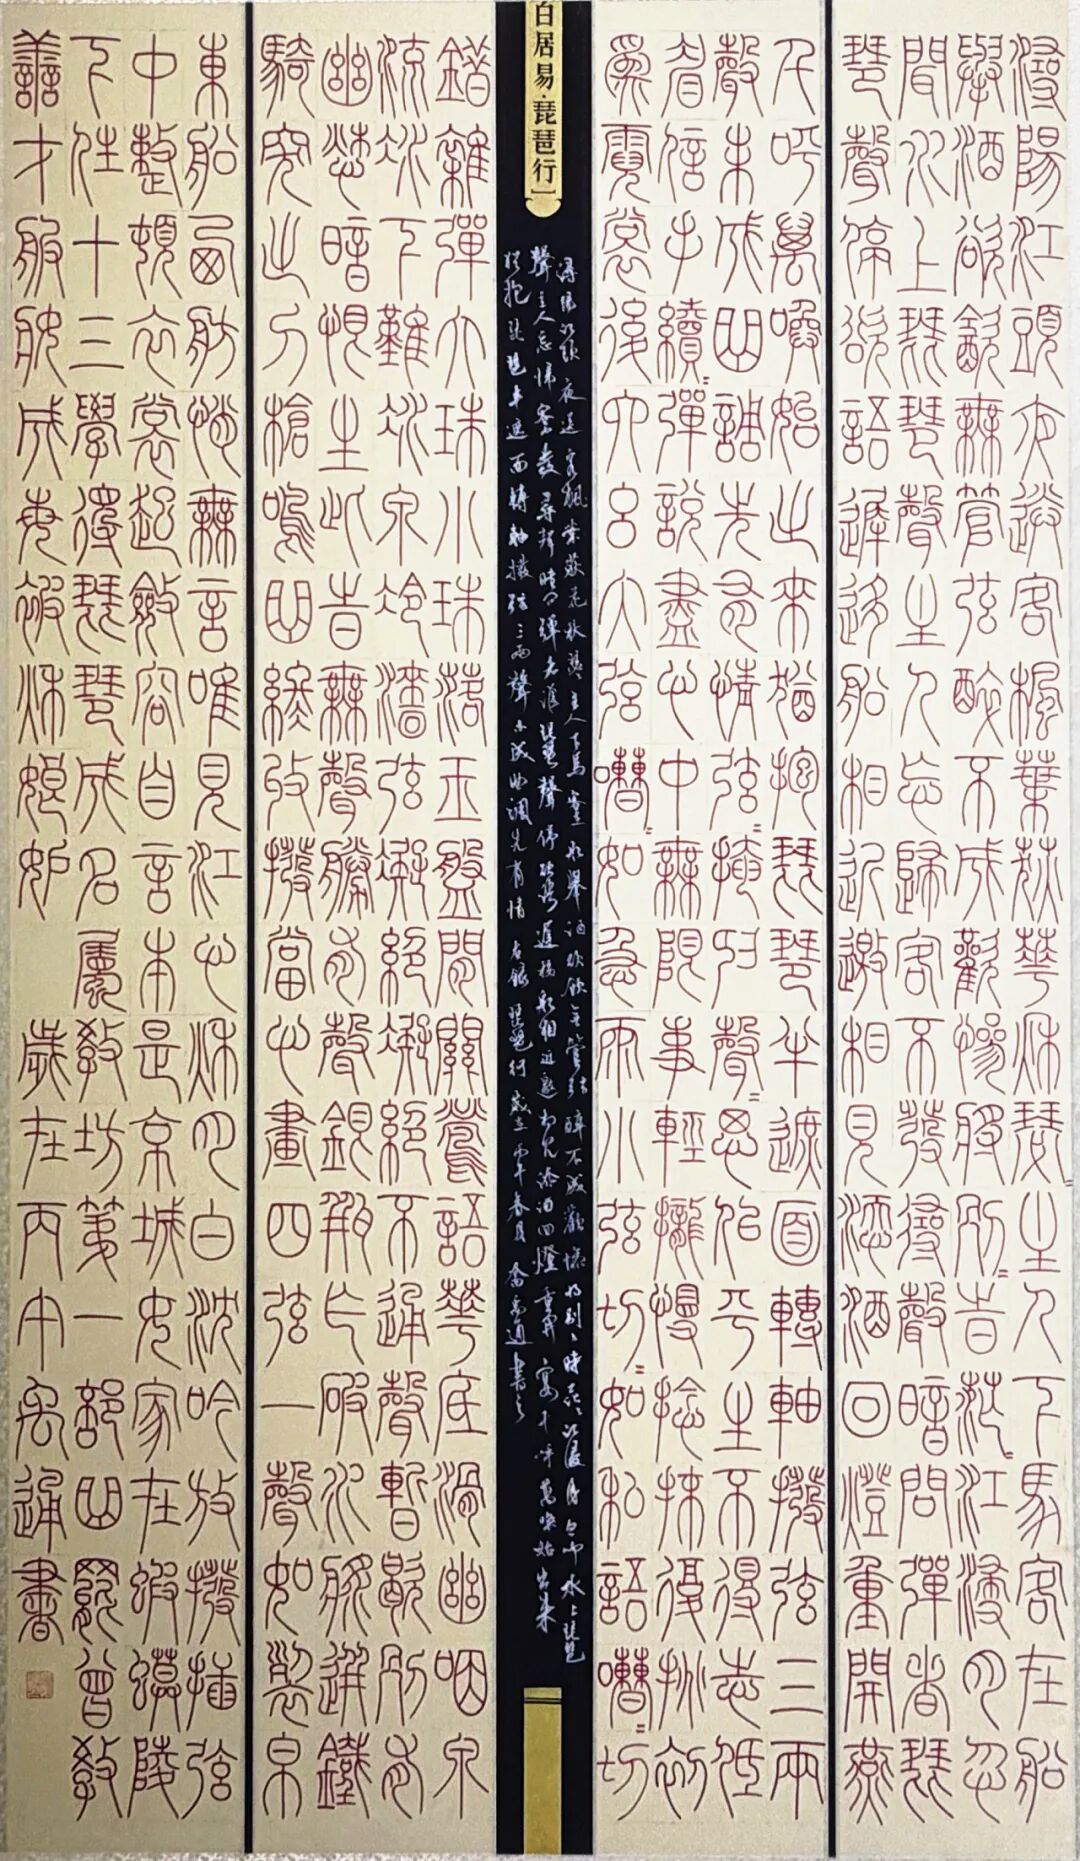 潯陽江頭夜送客楓葉荻華秋瑟=主人下馬客在船
舉酒欲飲無管弦醉不成歡慘將別=時茫=江浸月忽
聞水上琵琶聲主人忘歸客不發尋聲暗問彈者琵
琶聲停欲語遲移船相近邀相見添酒回燈重開燕
千呼萬喚始出來猶抱琵琶半遮面轉軸撥弦三兩
聲未成曲調先有情弦=掩抑聲=思似平生不得志低
眉信手續=彈說盡心中無限事輕攏慢撚抹復挑初
為霓裳後六么大弦嘈=如急雨小弦切=如私語嘈=切
白居易·琵琶行】
潯陽江頭夜送客楓葉荻花秋瑟=主人下馬客在船舉酒欲飲無管弦醉不成歡慘將別=時茫=江浸月忽聞水上琵琶
聲主人忘歸客不發尋聲暗問彈者誰琵琶聲停欲語遲移船相近邀相見添酒回燈重開宴千呼萬喚始出來
猶抱琵琶半遮面轉軸撥弦三兩聲未成曲調先有情 右錄琵琶行歲在丙午春月 禹通書之
錯雜彈大珠小珠落玉盤間關鶯語華底滑幽咽泉
流冰下難冰泉冷澀弦凝絕凝絕不通聲暫歇別有
幽愁暗恨生此時無聲勝有聲銀瓶乍破水漿迸鐵
騎突出刀槍鳴曲終收撥當心畫四弦一聲如裂帛
東船西舫悄無言唯見江心秋月白沈吟放撥插弦
中整頓衣裳起斂容自言本是京城女家在蝦蟆陵
下住十三學得琵琶成名屬教坊第一部曲罷曾教
善才服妝成每被秋娘妒 歲在丙午禹通書